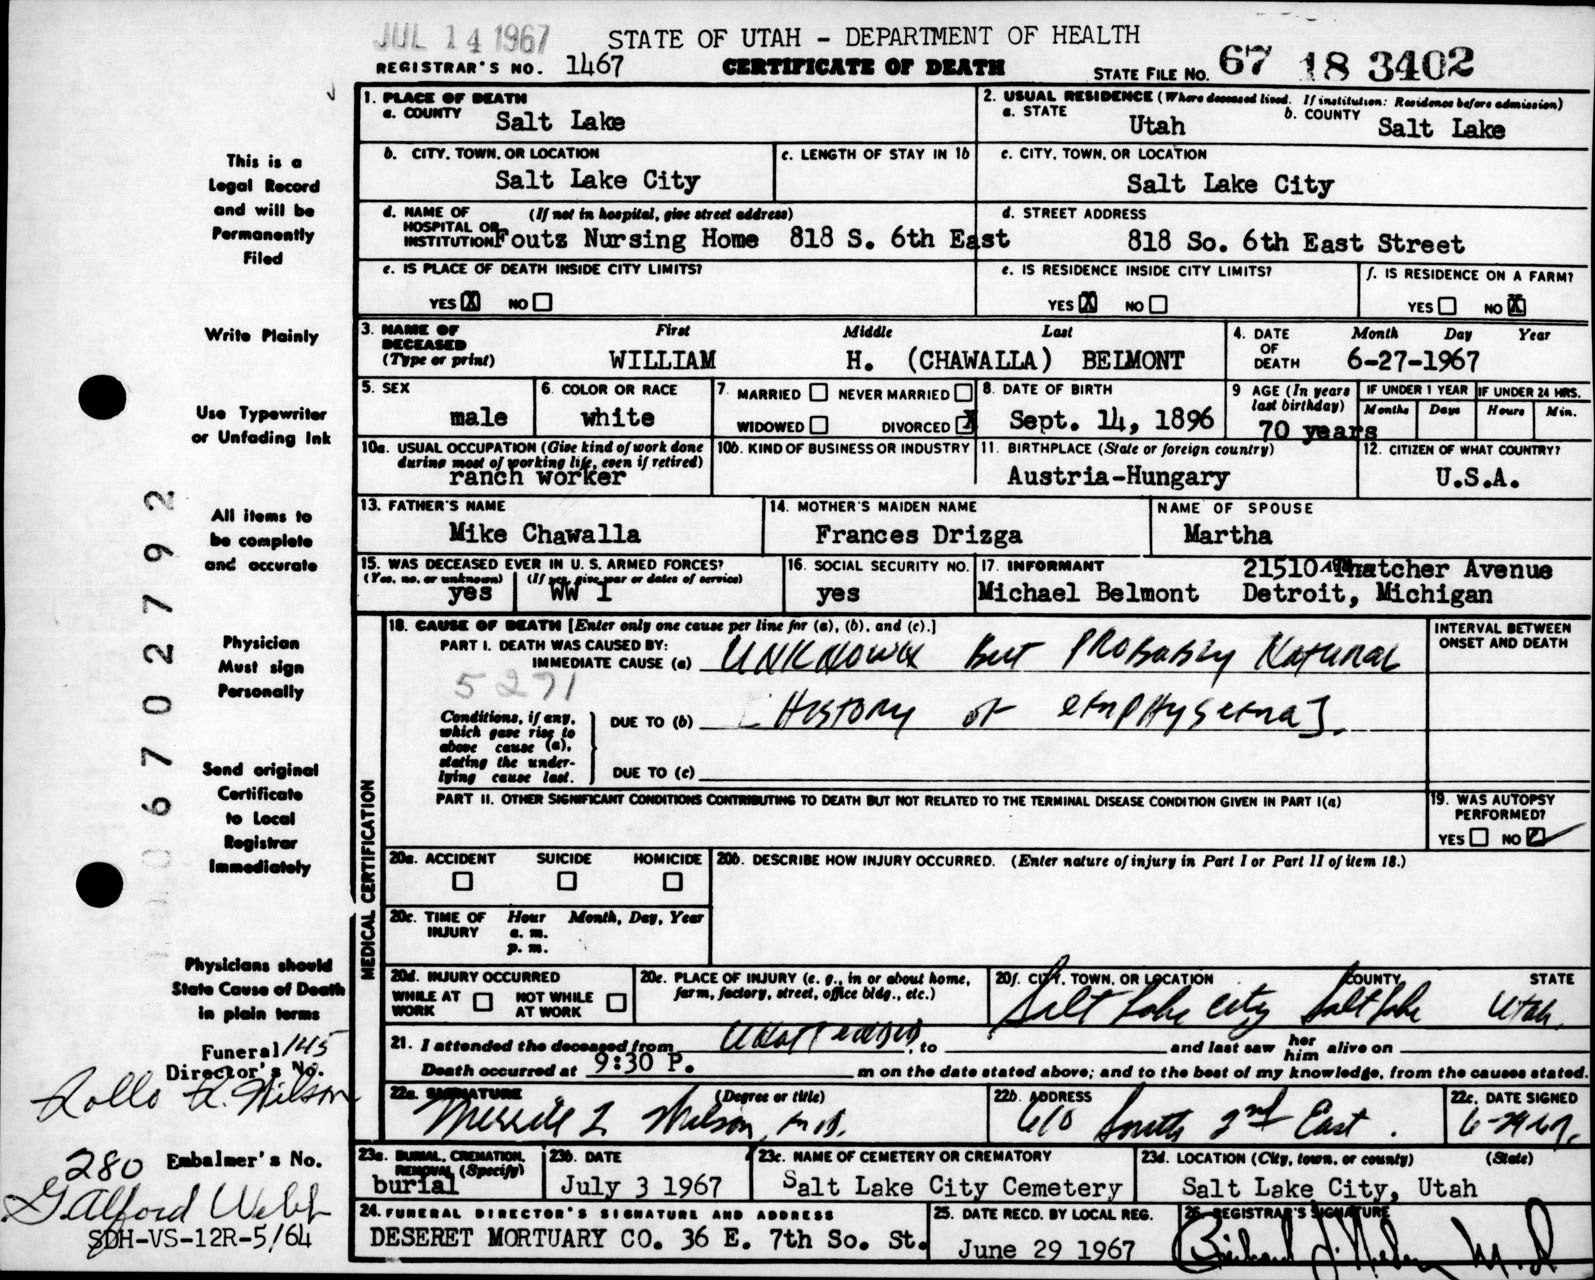 JUL 14 1967
STATE OF UTAH - DEPARTMENT OF HEALTH
REGISTRAR'S NO. 1467
CERTIFICATE OF DEATH
STATE FILE NO. 67 18 3402
1. PLACE OF DEATH
a. COUNTY Salt Lake
2. USUAL RESIDENCE (Where deceased lived. If institution: Residence before admission)
a. STATE Utah
b. COUNTY Salt Lake
b. CITY, TOWN, OR LOCATION
Salt Lake City
c. LENGTH OF STAY IN 1b
c. CITY, TOWN, OR LOCATION
Salt Lake City
d. NAME OF HOSPITAL OR INSTITUTION (If not in hospital, give street address)
Foutz Nursing Home 818 S. 6th East
d. STREET ADDRESS
818 So. 6th East Street
e. IS PLACE OF DEATH INSIDE CITY LIMITS?
YES X NO
e. IS RESIDENCE INSIDE CITY LIMITS?
YES X NO
f. IS RESIDENCE ON A FARM?
YES NO X
3. NAME OF DECEASED (Type or print)
First Middle Last
WILLIAM H. (CHAWALLA) BELMONT
4. DATE OF DEATH
Month Day Year
6-27-1967
5. SEX
male
6. COLOR OR RACE
white
7. MARRIED NEVER MARRIED
WIDOWED DIVORCED X
8. DATE OF BIRTH
Sept. 14, 1896
9 AGE (In years last birthday)
70 years
IF UNDER 1 YEAR
Months Days
IF UNDER 24 HRS.
Hours Min.
10a. USUAL OCCUPATION (Give kind of work done during most of working life, even if retired)
ranch worker
10b. KIND OF BUSINESS OR INDUSTRY
11. BIRTHPLACE (State or foreign country)
Austria-Hungary
12. CITIZEN OF WHAT COUNTRY?
U.S.A.
13. FATHER'S NAME
Mike Chawalla
14. MOTHER'S MAIDEN NAME
Frances Drizga
NAME OF SPOUSE
Martha
15. WAS DECEASED EVER IN U. S. ARMED FORCES?
(Yes, no, or unknown) (If yes, give war or dates of service)
yes WW I
16. SOCIAL SECURITY NO.
yes
17. INFORMANT
Michael Belmont
21510 Thatcher Avenue
Detroit, Michigan
18. CAUSE OF DEATH [Enter only one cause per line for (a), (b), and (c).]
PART I. DEATH WAS CAUSED BY:
IMMEDIATE CAUSE (a) UNKNOWN But PROBABLY Natural
5271
Conditions, if any, which gave rise to above cause (a), stating the underlying cause last.
DUE TO (b) [History of emphysema].
DUE TO (c)
INTERVAL BETWEEN ONSET AND DEATH
PART II. OTHER SIGNIFICANT CONDITIONS CONTRIBUTING TO DEATH BUT NOT RELATED TO THE TERMINAL DISEASE CONDITION GIVEN IN PART I(a)
19. WAS AUTOPSY PERFORMED?
YES NO
MEDICAL CERTIFICATION
20a. ACCIDENT SUICIDE HOMICIDE
20b. DESCRIBE HOW INJURY OCCURRED. (Enter nature of injury in Part I or Part II of item 18.)
20c. TIME OF INJURY
Hour Month, Day, Year
a. m.
p. m.
20d. INJURY OCCURRED
WHILE AT WORK NOT WHILE AT WORK
20e. PLACE OF INJURY (e. g., in or about home, farm, factory, street, office bldg., etc.)
20f. CITY, TOWN, OR LOCATION COUNTY STATE
Salt Lake City Salt Lake Utah
21. I attended the deceased from Unattended, to and last saw her him alive on
Death occurred at 9:30 P. m on the date stated above; and to the best of my knowledge, from the causes stated.
22a. SIGNATURE (Degree or title)
Merrill L Wilson, M.D.
22b. ADDRESS
610 South 2nd East.
22c. DATE SIGNED
6-29-67.
23a. BURIAL, CREMATION, REMOVAL (Specify)
burial
23b. DATE
July 3 1967
23c. NAME OF CEMETERY OR CREMATORY
Salt Lake City Cemetery
23d. LOCATION (City, town, or county) (State)
Salt Lake City, Utah
24. FUNERAL DIRECTOR'S SIGNATURE AND ADDRESS
DESERET MORTUARY CO. 36 E. 7th So. St.
25. DATE RECD. BY LOCAL REG.
June 29 1967
26. REGISTRAR'S SIGNATURE
M.D.
This is a
Legal Record
and will be
Permanently
Filed
Write Plainly
Use Typewriter
or Unfading Ink
All items to
be complete
and accurate
Physician
Must sign
Personally
Send original
Certificate
to Local
Registrar
Immediately
Physicians should
State Cause of Death
in plain terms
Funeral 145
Director's No.
Rollo R. Wilson
280 Embalmer's No.
G. Alford Webb
SDH-VS-12R-5/64
06702792